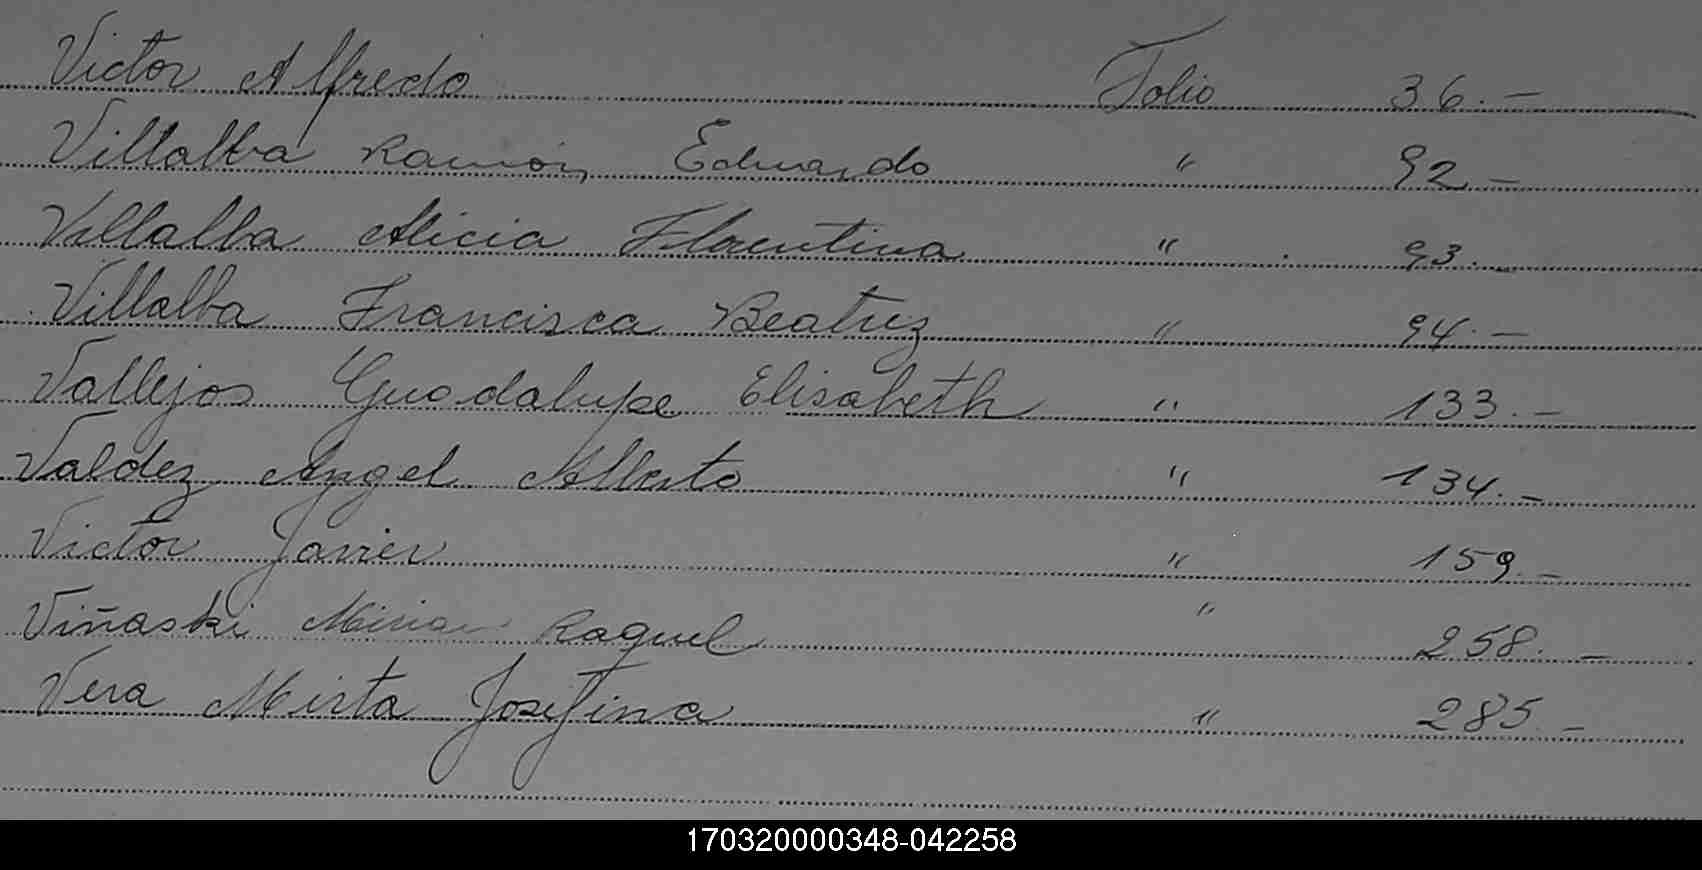 Victor Alfredo Folio 36.-
Villalba Ramón Eduardo " 92.-
Villalba Alicia Florentina " 93.-
Villalba Francisca Beatriz " 94.-
Vallejos Guadalupe Elisabeth " 133.-
Valdez Angel Alberto " 134.-
Victor Javier " 159.-
Viñaski Miriam Raquel " 258.-
Vera Mirta Josefina " 285.-
170320000348-042258